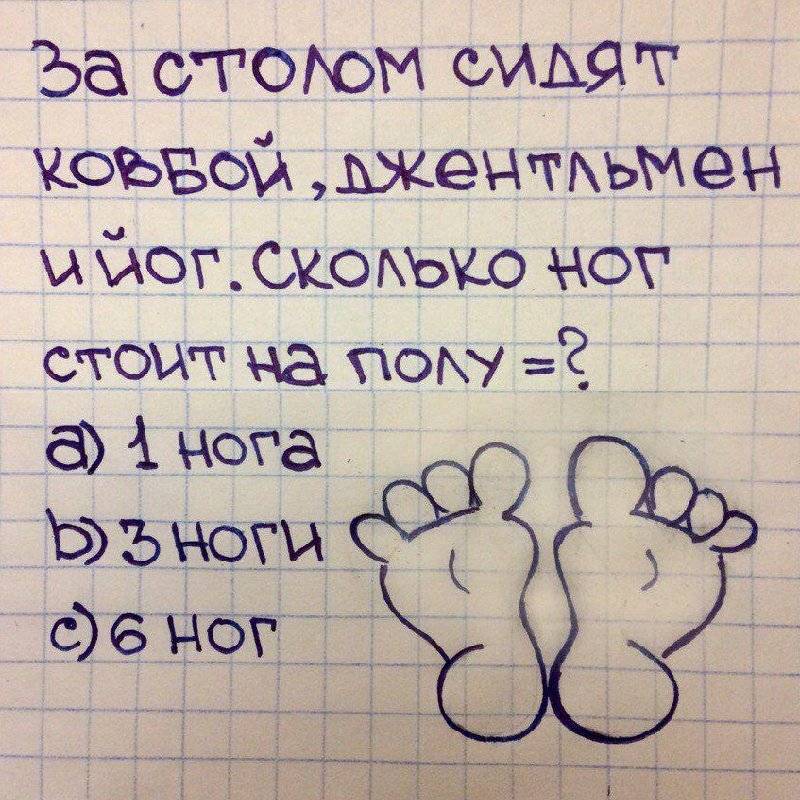 За столом сидят
ковбой, джентльмен
и йог. Сколько ног
стоит на полу =?
a) 1 нога
b) 3 ноги
c) 6 ног